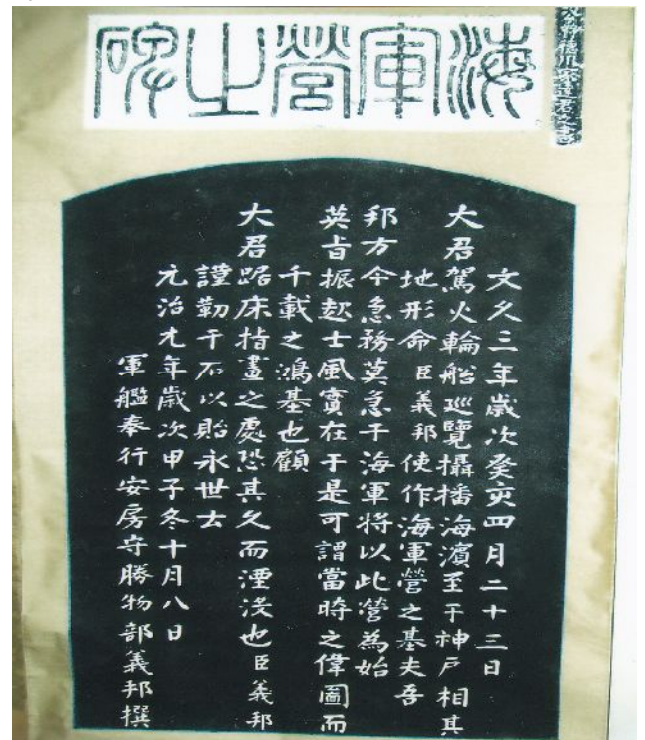 海軍營之碑
德川家達君之書
文久三年歳次癸亥四月二十三日
大君駕火輪船巡覽攝播海濱至于神戸相其
地形命臣義邦使作海軍營之基夫吾
邦方今急務莫急于海軍将以此營為始
英旨振起士風實在于是可謂當時之偉圖而
千載之鴻基也顧
大君踞床指畫之處恐其久而湮没也臣義邦
謹勒于石以貽永世云
元治元年歳次甲子冬十月八日
軍艦奉行安房守勝物部義邦撰